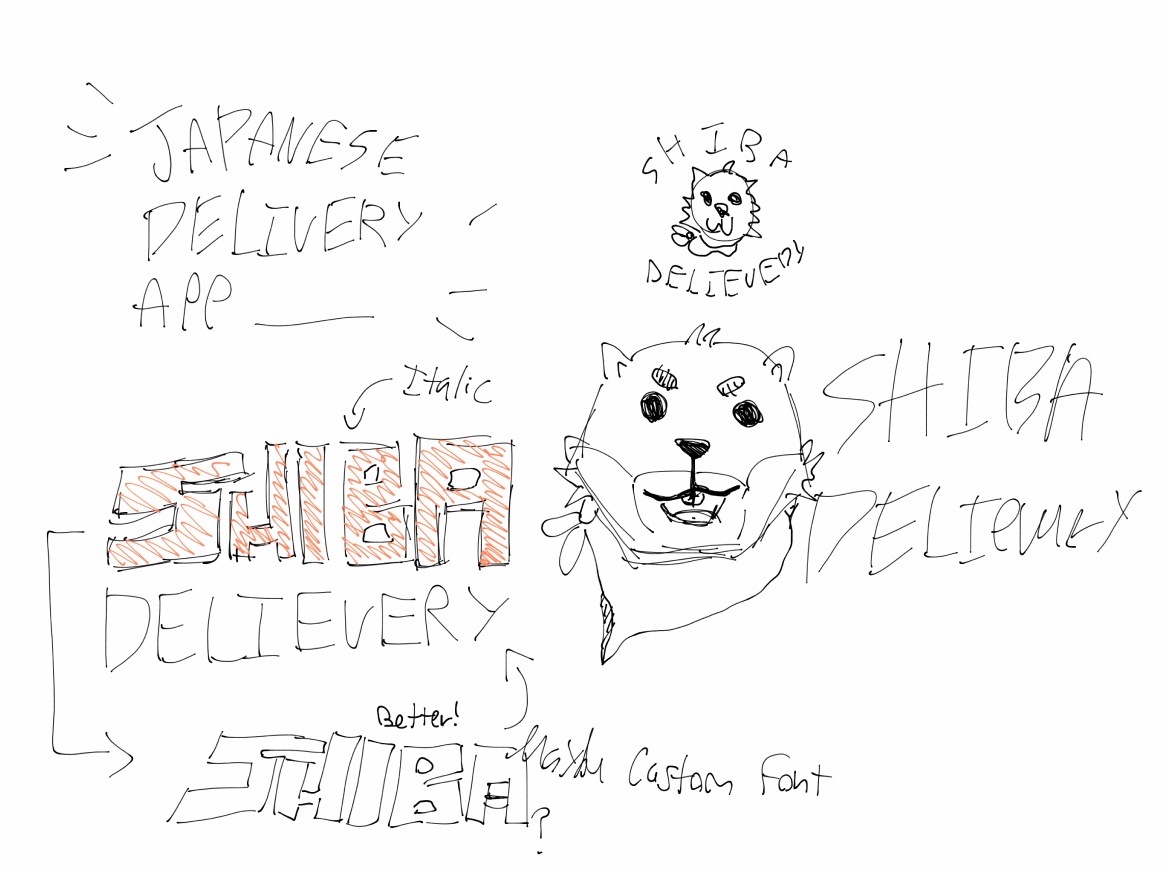 JAPANESE
DELIVERY
APP
SHIBA
DELIEVERY
Italic
SHIBA
DELIEVERY
SHIBA
DELIEVERY
Better!
SHIBA?
Custom Font